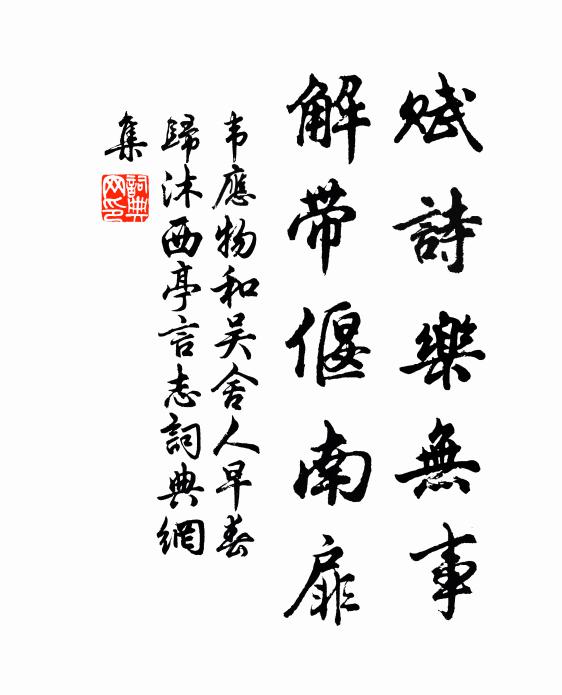 賦詩樂無事
解帶偃南扉
韦應物和吴舍人早春
歸沐西亭言志詞典網
集
詞典
网印